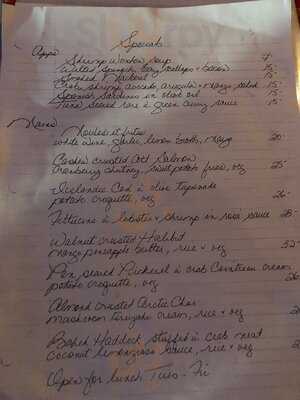 Specials
Apps
Shrimp Wonton Soup 7-
Water Spinach, bay scallops + bacon 15-
Smoked Mackerel 15-
Crab, shrimp, avocado, arugula + mango salad 15-
Spanish Sardines in olive oil 15-
Tuna seared rare in green curry sauce 15-
Mains
Moules et frites
white wine, garlic, lemon broth, mayo 20-
Cashew crusted Atl Salmon
cranberry chutney, sweet potato fries, veg 25-
Icelandic Cod in olive tapenade
potato croquette, veg 26-
Fettucine in lobster + shrimp in rosé sauce 28-
Walnut crusted Halibut
mango pineapple butter, rice + veg 32-
Pan seared Pickerel in crab Cointreau cream
potato croquette, veg 26
Almond crusted Arctic Char
mushroom teriyaki cream, rice + veg
Baked Haddock stuffed in crab meat
coconut lemongrass sauce, rice + veg
Open for lunch Tues - Fri